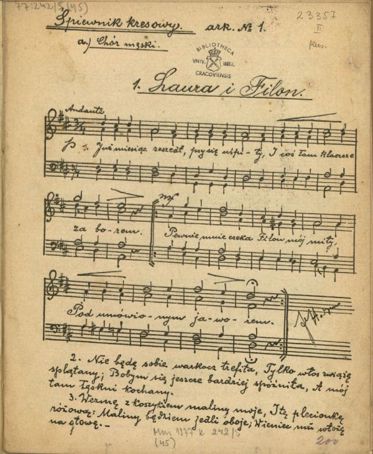 77:242/5 (45)
Śpiewnik kresowy. ark. № 1.
23357
II
a.) Chór męski.
BIBLIOTHECA
UNIV. IAGELL.
CRACOVIENSIS
1. Laura i Filon.
Andante
p Już miesiąc zeszedł, psy się uśpi-ły, I coś tam klaszcze
mf
za bo-rem. Pewnie mnie czeka Filon mój miły,
Pod umówio-nym ja-wo-rem.
2. Nie będę sobie warkocz trefiła, Tylko włos zwiążę
splątany; Bobym się jeszcze bardziej spóźniła, A mój
tam tęskni kochany.
3. Wezmę z koszykiem maliny moje, I tę plecionkę
różową: Maliny będziem jedli oboje, Wieniec mu włożę
na głowę.–
(45)
200